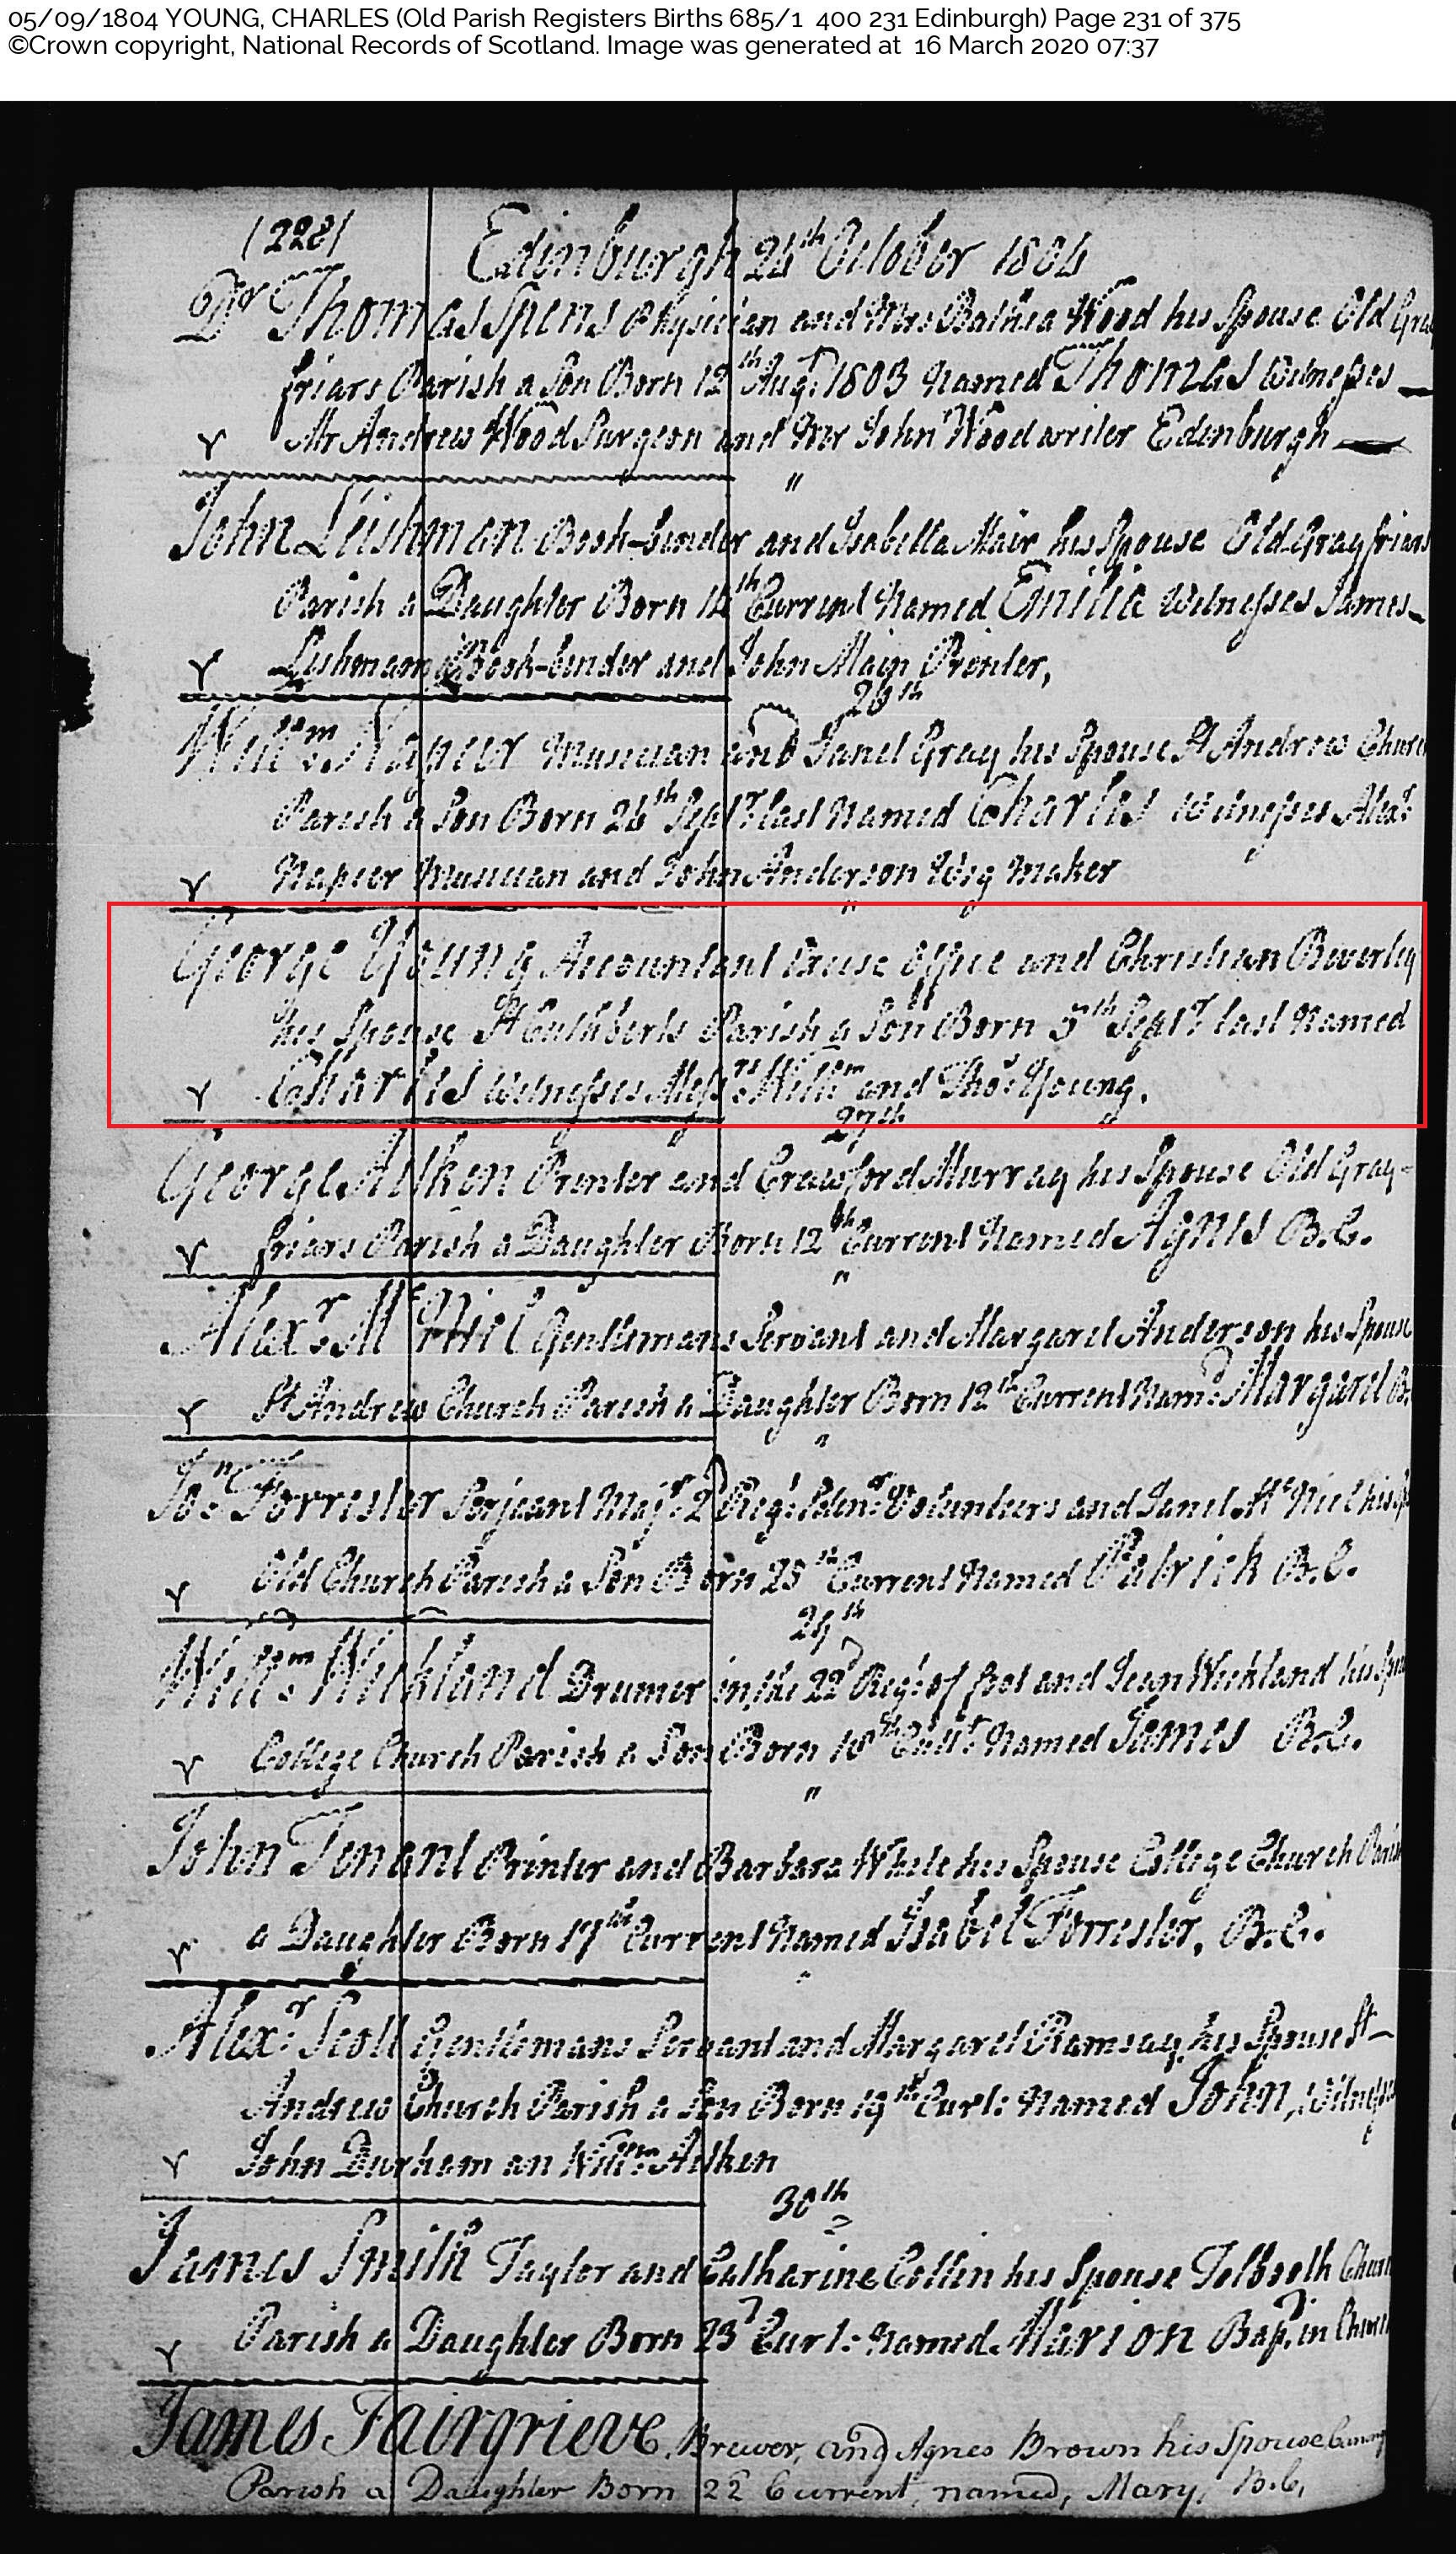 05/09/1804 YOUNG, CHARLES (Old Parish Registers Births 685/1 400 231 Edinburgh) Page 231 of 375
©Crown copyright, National Records of Scotland. Image was generated at 16 March 2020 07:37
(228)
Edinburgh 24th October 1804
Dr Thomas Spens Physician and Mrs Bathia Wood his Spouse Old Gray
friars Parish a Son Born 12th Augt 1803 Named Thomas Witnesses
Mr Andrew Wood Surgeon and Mr John Wood writer Edinburgh
"
John Leishman Book-binder and Isabella Mair his Spouse Old Grayfriars
Parish a Daughter Born 14th Current Named Emilia Witnesses James
Leishman Book-binder and John Main Printer,
26th
Willm Napier Musician and Janet Gray his Spouse St Andrew Church
Parish a Son Born 24th Septr last Named Charles Witnesses Alexr
Napier Musician and John Anderson Wig Maker
"
George Young Accountant Excise Office and Christian Beverley
his Spouse St Cuthberts Parish a Son Born 5th Septr last Named
Charles Witnesses Messrs Willm and Thos Young.
27th
George Aitken Printer and Crawford Murray his Spouse Old Gray-
friars Parish a Daughter Born 12th Current Named Agnes B.C.
"
Alexr Mc Gentlemans Servant and Margaret Anderson his Spouse
St Andrew Church Parish a Daughter Born 12th Current Namd Margaret B.
"
Jon Forrester Serjeant Majr 2d Regt Edinr Volunteers and Janet Mc Niel his
Old Church Parish a Son Born 25th Current Named Patrick B.C.
29th
Willm Wickland Drumer in the 22d Regt of foot and Jean Wickland his
College Church Parish a Son Born 18th Currt Named James B.C.
"
John Tenant Printer and Barbara White his Spouse College Church Parish
a Daughter Born 17th Current Named Isabel Forrester, B.C.
"
Alexr Scott Gentlemans Servant and Margaret Ramsay his Spouse St
Andrew Church Parish a Son Born 19th Curt: Named John, Witnesses
John Durham an Willm Aitken
30th
James Smith Taylor and Catharine Collin his Spouse Tolbooth Church
Parish a Daughter Born 23d Curt: Named Marion Bapd in Church
James Fairgrieve, Brewer, and Agnes Brown his Spouse
Parish a Daughter Born 22d Current, named, Mary, B.C,